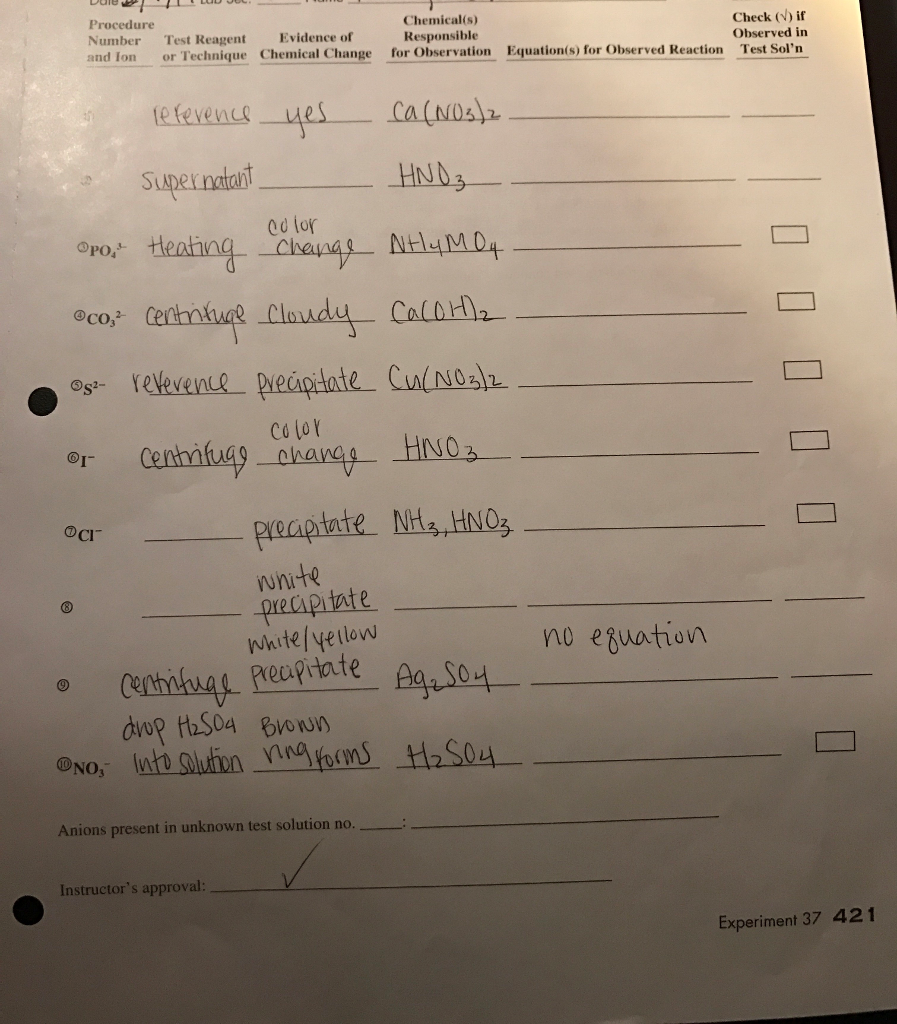 Procedure Number and Ion Test Reagent or Technique Evidence of Chemical Change Chemical(s) Responsible for Observation Equation(s) for Observed Reaction Check (√) if Observed in Test Sol'n
reference yes Ca(NO3)2
supernatant HNO3
③PO₄³⁻ Heating color change NH4MO4
④CO₃²⁻ centrifuge cloudy Ca(OH)2
⑤S²⁻ reference precipitate Cu(NO3)2
⑥I⁻ centrifuge color change HNO3
⑦Cl⁻ precipitate NH3, HNO3
⑧ white precipitate
no equation
⑨ centrifuge white/yellow precipitate Ag2SO4
⑩NO₃⁻ drop H2SO4 into solution Brown ring forms H2SO4
Anions present in unknown test solution no. ____: ____
Instructor's approval: ✓
Experiment 37 421